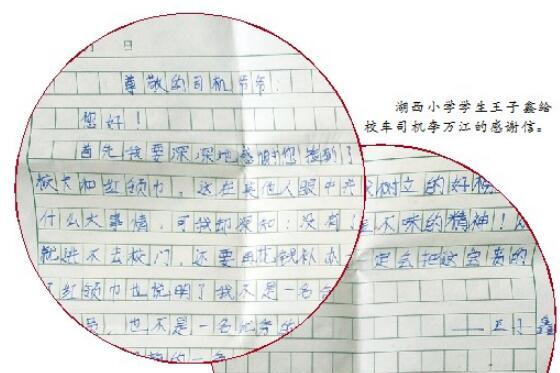 月 日
尊敬的司机爷爷：
您好！
首先我要深深地感谢您捡到了
校卡和红领巾，这在其他人眼中并
什么大事情，可我却深知：没有
就进不去校门，还要用花钱补办
了红领巾也说明了我不是一名合
员，也不是一名优秀的
的一名
树立的好榜
金不昧的精神！！
定会把这宝贵的
——王子鑫
湖西小学学生王子鑫给
校车司机李万江的感谢信。